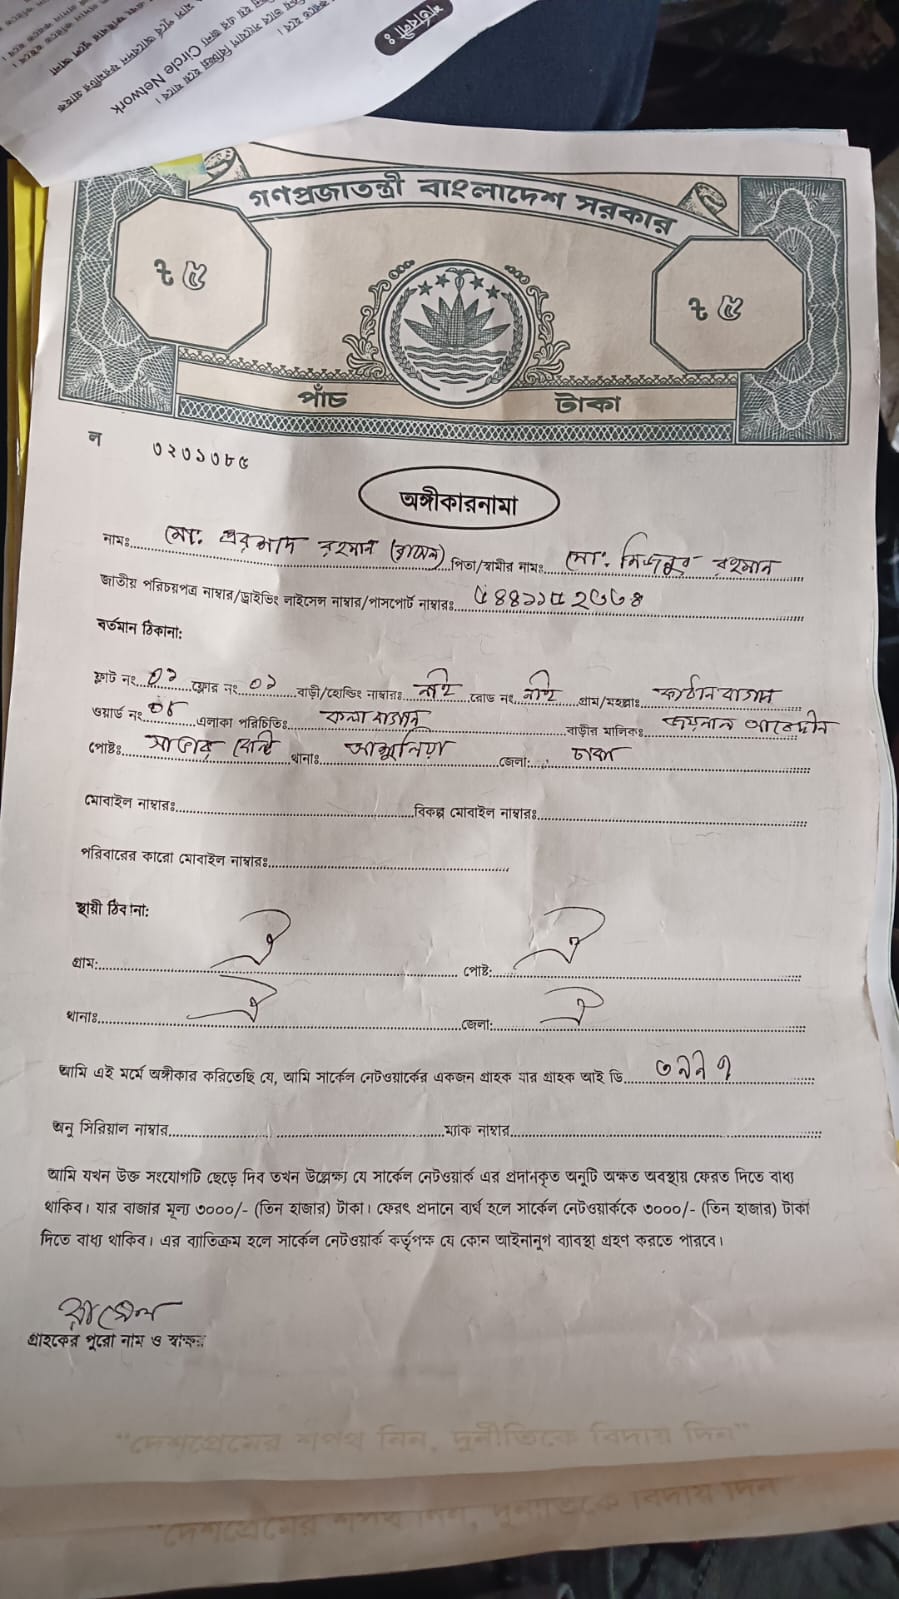 শর্তাবলী :
Circle Network
গণপ্রজাতন্ত্রী বাংলাদেশ সরকার
৳ ৫ ৳ ৫
পাঁচ টাকা
ন ৩২৩১৩৮৫
অঙ্গীকারনামা
নামঃ মো: রহমান (রাসেল) পিতা/স্বামীর নামঃ মো: মিজানুর রহমান
জাতীয় পরিচয়পত্র নাম্বার/ড্রাইভিং লাইসেন্স নাম্বার/পাসপোর্ট নাম্বারঃ
বর্তমান ঠিকানা:
ফ্লাট নং ০১ ফ্লোর নং ০১ বাড়ী/হোল্ডিং নাম্বারঃ নাই রোড নং নাই গ্রাম/মহল্লাঃ কাঠাল বাগান
ওয়ার্ড নং ০৮ এলাকা পরিচিতিঃ কলা বাগান বাড়ীর মালিকঃ জয়নাল আবেদীন
পোষ্টঃ থানাঃ আশুলিয়া জেলা: ঢাকা
মোবাইল নাম্বারঃ বিকল্প মোবাইল নাম্বারঃ
পরিবারের কারো মোবাইল নাম্বারঃ
স্থায়ী ঠিকানা:
গ্রাম: ঐ পোষ্ট: ঐ
থানাঃ ঐ জেলা: ঐ
আমি এই মর্মে অঙ্গীকার করিতেছি যে, আমি সার্কেল নেটওয়ার্কের একজন গ্রাহক যার গ্রাহক আই ডি
অনু সিরিয়াল নাম্বার ম্যাক নাম্বার
আমি যখন উক্ত সংযোগটি ছেড়ে দিব তখন উল্লেক্ষ্য যে সার্কেল নেটওয়ার্ক এর প্রদানকৃত অনুটি অক্ষত অবস্থায় ফেরত দিতে বাধ্য
থাকিব। যার বাজার মূল্য ৩০০০/- (তিন হাজার) টাকা। ফেরৎ প্রদানে ব্যর্থ হলে সার্কেল নেটওয়ার্ককে ৩০০০/- (তিন হাজার) টাকা
দিতে বাধ্য থাকিব। এর ব্যাতিক্রম হলে সার্কেল নেটওয়ার্ক কর্তৃপক্ষ যে কোন আইনানুগ ব্যাবস্থা গ্রহণ করতে পারবে।
রাসেল
গ্রাহকের পুরো নাম ও স্বাক্ষর
"দেশপ্রেমের শপথ নিন, দুর্নীতিকে বিদায় দিন"
"দেশপ্রেমের শপথ নিন, দুর্নীতিকে বিদায় দিন